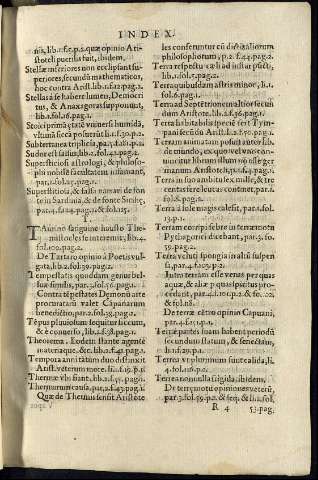 INDEX.
lib. 1. f. 5. p. 2. quæ opinio Ari-
stoteli puerilis fuit, ibidem.
Stellæ inferiores non eclipsant su-
periores, secundū mathematicos,
hoc contra Arist. lib. 1. f. 12. pag. 2
Stellas à se habere lumen, Democri-
tus, & Anaxagoras supponunt,
lib. 2. fol. 16. pag. 1.
Stoici prima ætate universi humida,
ultima sicca posuerūt li. 2. f. 30. p. 2.
Subterranea triplicia, par. 2. f. 46. p. 1.
Sudor est salsus, lib. 2. fol. 2. pag. 2.
Superstitiosi astrologi, & philoso-
phi nobilē facultatem infamant,
par. 1. fol. 25. pag. 1.
Superstitiosa, & falsi narrari de fon-
te in Sardinia, & de fonte Siculo,
par. 4. f. 14. pag. 1. & fol. 115.
T.
Taurino sanguine hausto The-
mistocles se interemit, lib. 4.
fol. 109. pag. 2.
De Tartaro opinio à Poetis vul-
gata, lib. 2. fol. 39. pag. 2.
Tempestatis quoddam genus bel-
lus similis, par. 3. fol. 50. pag. 2.
Contra tēpestates Dæmonū arte
procuratam valet Capānarum
benedictio, par. 3. fol. 38. pag. 2
Tēpus pluviosum sequitur siccum,
& è converso, lib. 2. f. 58. pag. 1.
Theorema. Eodem stante agente
materiaque, &c. lib. 2. f. 43. pag. 1.
Tempora anni tātum duo distinxit
Arist. veterum more. li. 2. f. 29. p. 1.
Thermæ vbi siant, lib. 2. f. 55. pag. 1.
Thermarum causa, par. 2. f. 43. pag. 2
Quæ de Thermis sensit Aristote
les conferuntur cū dictis aliorum
philosophorum, p. 2. f. 44. pag. 2.
Terra respectu cæli ad instar pūcti,
lib. 1. fol. 5. pag. 1.
Terra quibusdam astris minor, li. 1.
fol. 6. pag. 1.
Terra ad Septētrionem altior secun
dum Aristote. lib. 2. f. 12. pag. 2.
Terra habitabilis speciē fert Tym-
pani secūdū Arist. li. 2. f. 50. pag. 2
Terram animatam posuit autor lib.
de mundo, ex quo vel vano con-
vincitur librum illum nō esse ger
manum Aristote. li, par. 2. f. 51. pag. 1
Terra in suo ambitu lex mille, & tre
centas fere leucas continet, par. 2
fol. 3. pag. 2.
Terra à sole magis calesit, par. 4. fol.
13. p. 1.
Terram corripi febre in terræmotu
Pythagorici dicebant, par. 3. fo.
59. pag. 2.
Terra veluti spongia in altū suspen
sa, par. 4. f. 103. p. 2.
An in terram esse venas per quas
aquæ, & aliæ per quas spiritus pro
cedant, par. 1. f. 100. p. 2 & fo. 102.
& fol.
De terræ cētro opinio Capuani,
par. 2. f. 18. p. 1.
Terræ partes suam habent periodū
secundum statum, & senectam,
li. 2. f. 29. p. 1.
Terrea vt plurimum sunt calida, li.
4. fol. 118. p. 2.
Terrea nonnulla frigida, ibidem.
De terræmotu opiniones veterū,
par. 3. fol. 59. p. 2. & seq. & li. 2. fol.
R 4 53. pag.